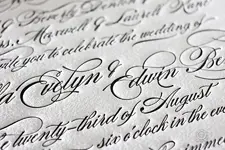 & Beverly Denton
Maxwell & Laurell Kane
you to celebrate the wedding of
Evelyn & Edwin Be
twenty-third of August
six o'clock in the eve